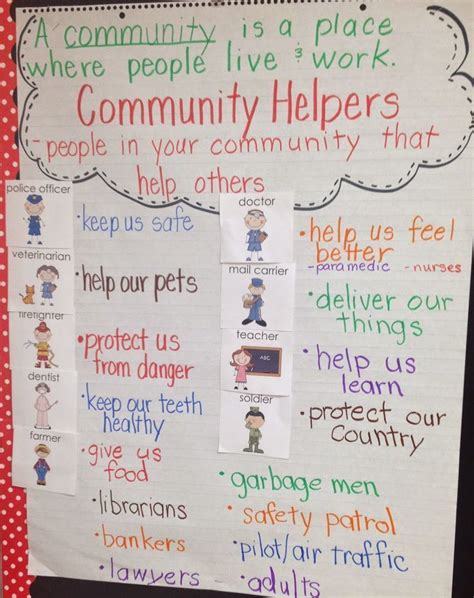 A community is a place
where people live & work.
Community Helpers
- people in your community that
help others
police officer
• keep us safe
veterinarian
• help our pets
firefighter
• protect us
from danger
dentist
• keep our teeth
healthy
farmer
• give us
food
• librarians
• bankers
• lawyers
doctor
• help us feel
better
- paramedic - nurses
mail carrier
• deliver our
things
teacher
ABC
• help us
learn
soldier
• protect our
Country
• garbage men
• safety patrol
• pilot/air traffic
• adults